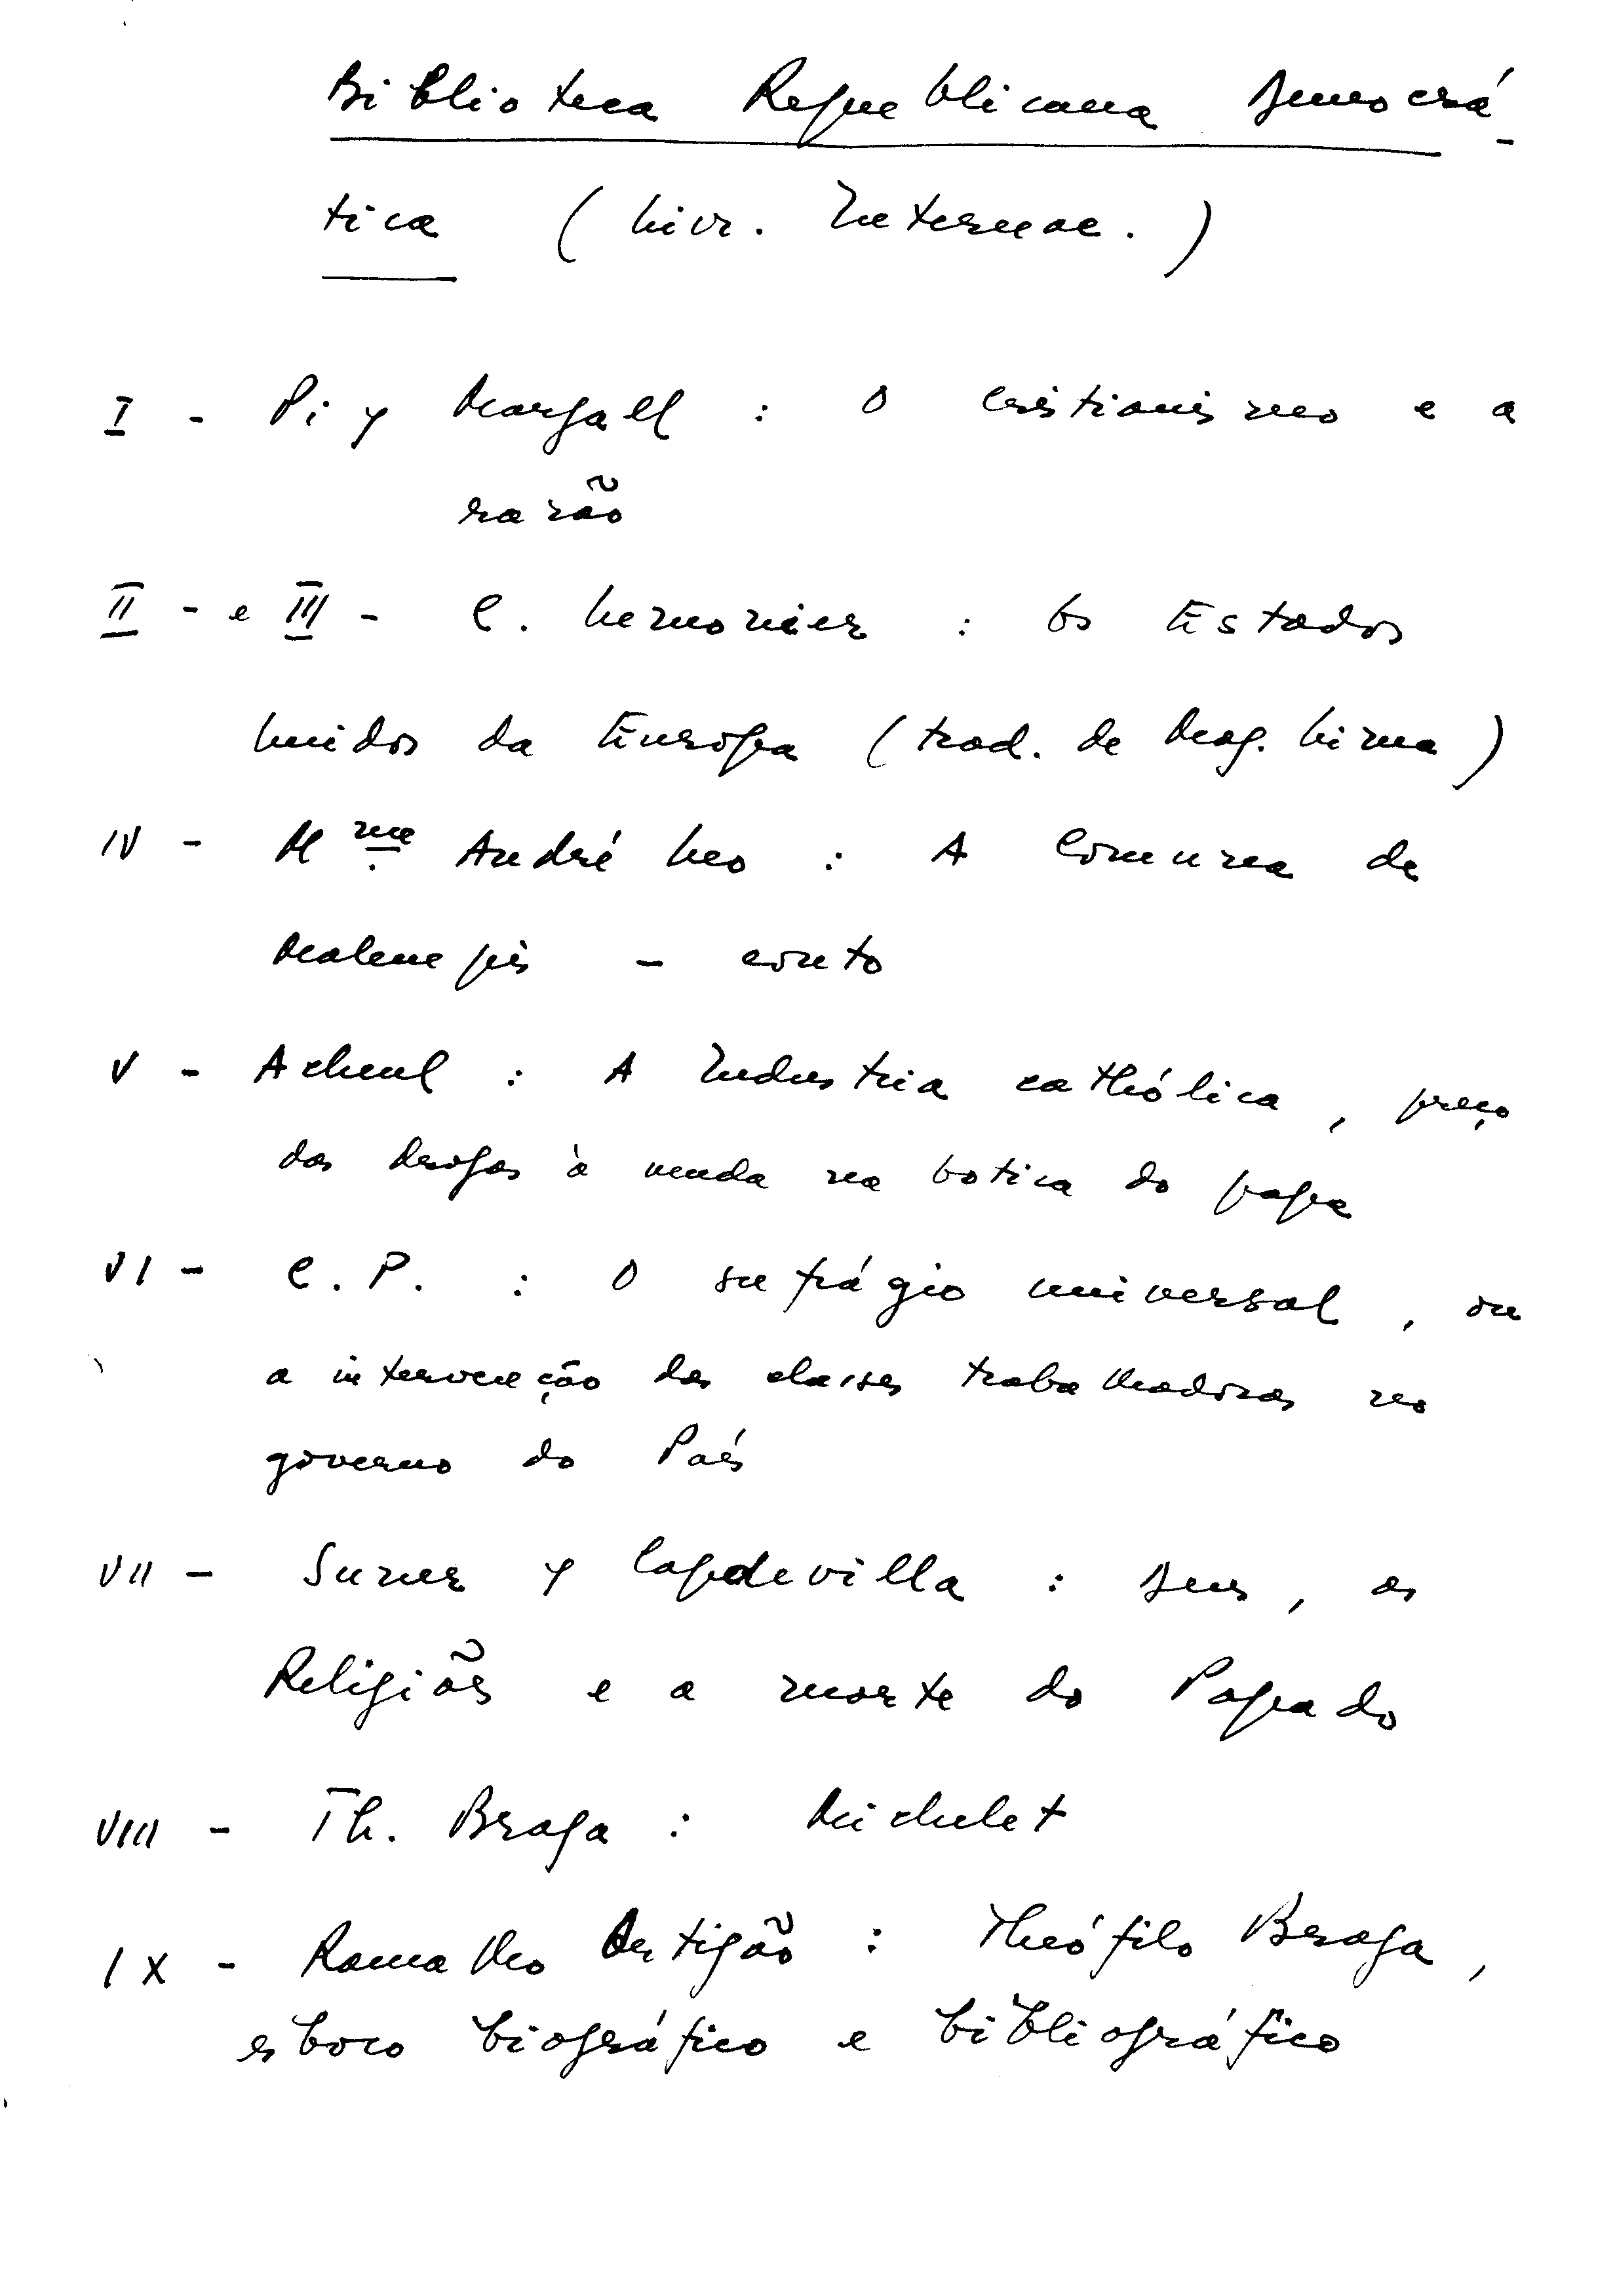 Biblioteca Republicana Democrá-
tica (Livr. Internac.)
I - Pi y Margall : O cristianismo e a
razão
II - e III - C. Lemonnier : Os Estados
Unidos da Europa (trad. de Mag. Lima)
IV - Mme. André Leo : A Comuna de
Malenpis - conto
V - Acheul : A Industria cathólica, preço
das drogas à venda na botica do papa
VI - C. P. : O sufrágio universal, ou
a intervenção das classes trabalhadoras no
governo do País
VII - Suner y Capdevilla : Deus, as
Religiões e a morte do Papado
VIII - Th. Braga : Michelet
IX - Ramalho Ortigão : Theófilo Braga,
esboco biográfico e bibliográfico